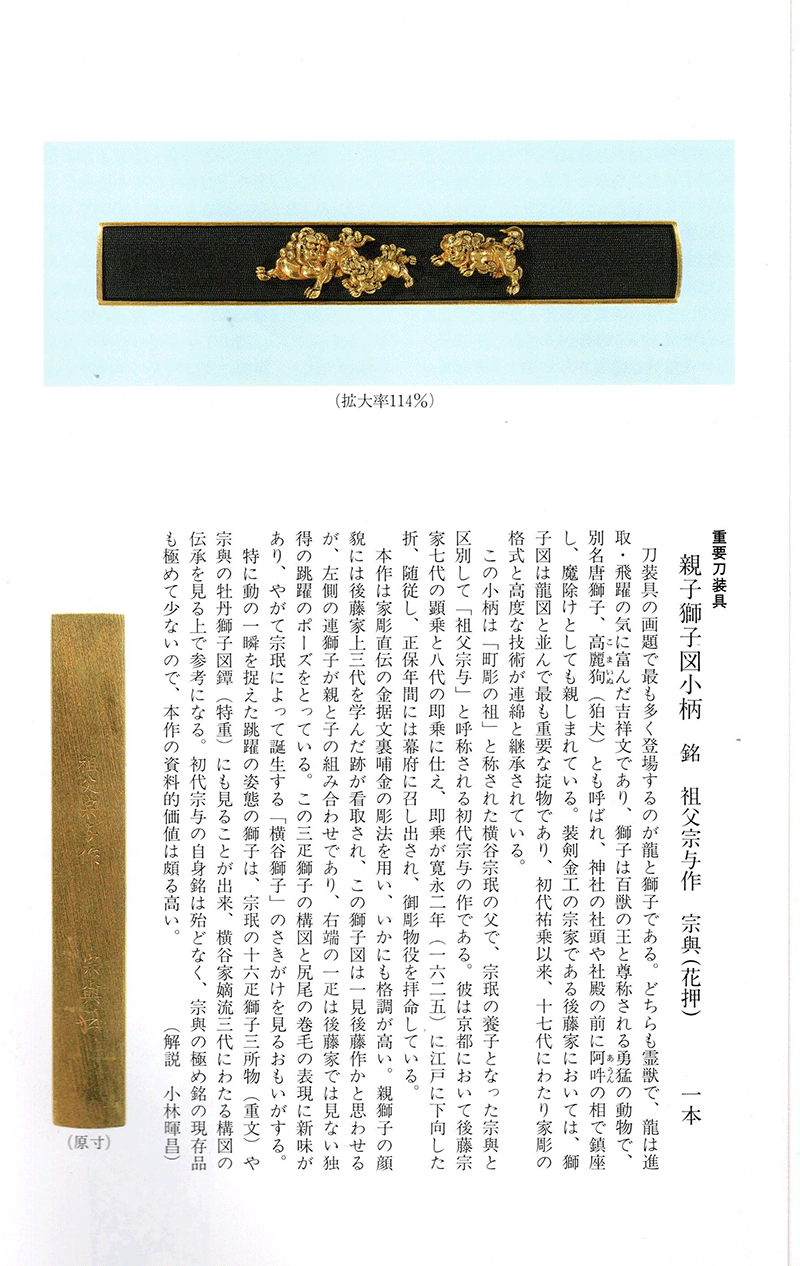 (拡大率114%)
重要刀装具
親子獅子図小柄 銘 祖父宗与作 宗與(花押) 一本
刀装具の画題で最も多く登場するのが龍と獅子である。どちらも霊獣で、龍は進
取・飛躍の気に富んだ吉祥文であり、獅子は百獣の王と尊称される勇猛の動物で、
別名唐獅子、高麗狗(こまいぬ)(狛犬)とも呼ばれ、神社の社頭や社殿の前に阿吽(あうん)の相で鎮座
し、魔除けとしても親しまれている。装剣金工の宗家である後藤家においては、獅
子図は龍図と並んで最も重要な掟物であり、初代祐乗以来、十七代にわたり家彫の
格式と高度な技術が連綿と継承されている。
この小柄は「町彫の祖」と称された横谷宗珉の父で、宗珉の養子となった宗與と
区別して「祖父宗与」と呼称される初代宗与の作である。彼は京都において後藤宗
家七代の顕乗と八代の即乗に仕え、即乗が寛永二年(一六二五)に江戸に下向した
折、随従し、正保年間には幕府に召し出され、御彫物役を拝命している。
本作は家彫直伝の金据文裏哺金の彫法を用い、いかにも格調が高い。親獅子の顔
貌には後藤家上三代を学んだ跡が看取され、この獅子図は一見後藤作かと思わせる
が、左側の連獅子が親と子の組み合わせであり、右端の一疋は後藤家では見ない独
得の跳躍のポーズをとっている。この三疋獅子の構図と尻尾の巻毛の表現に新味が
あり、やがて宗珉によって誕生する「横谷獅子」のさきがけを見るおもいがする。
特に動の一瞬を捉えた跳躍の姿態の獅子は、宗珉の十六疋獅子三所物(重文)や
宗與の牡丹獅子図鐔(特重)にも見ることが出来、横谷家嫡流三代にわたる構図の
伝承を見る上で参考になる。初代宗与の自身銘は殆どなく、宗與の極め銘の現存品
も極めて少ないので、本作の資料的価値は頗る高い。
(解説 小林暉昌)
祖父宗与作 宗與
(原寸)